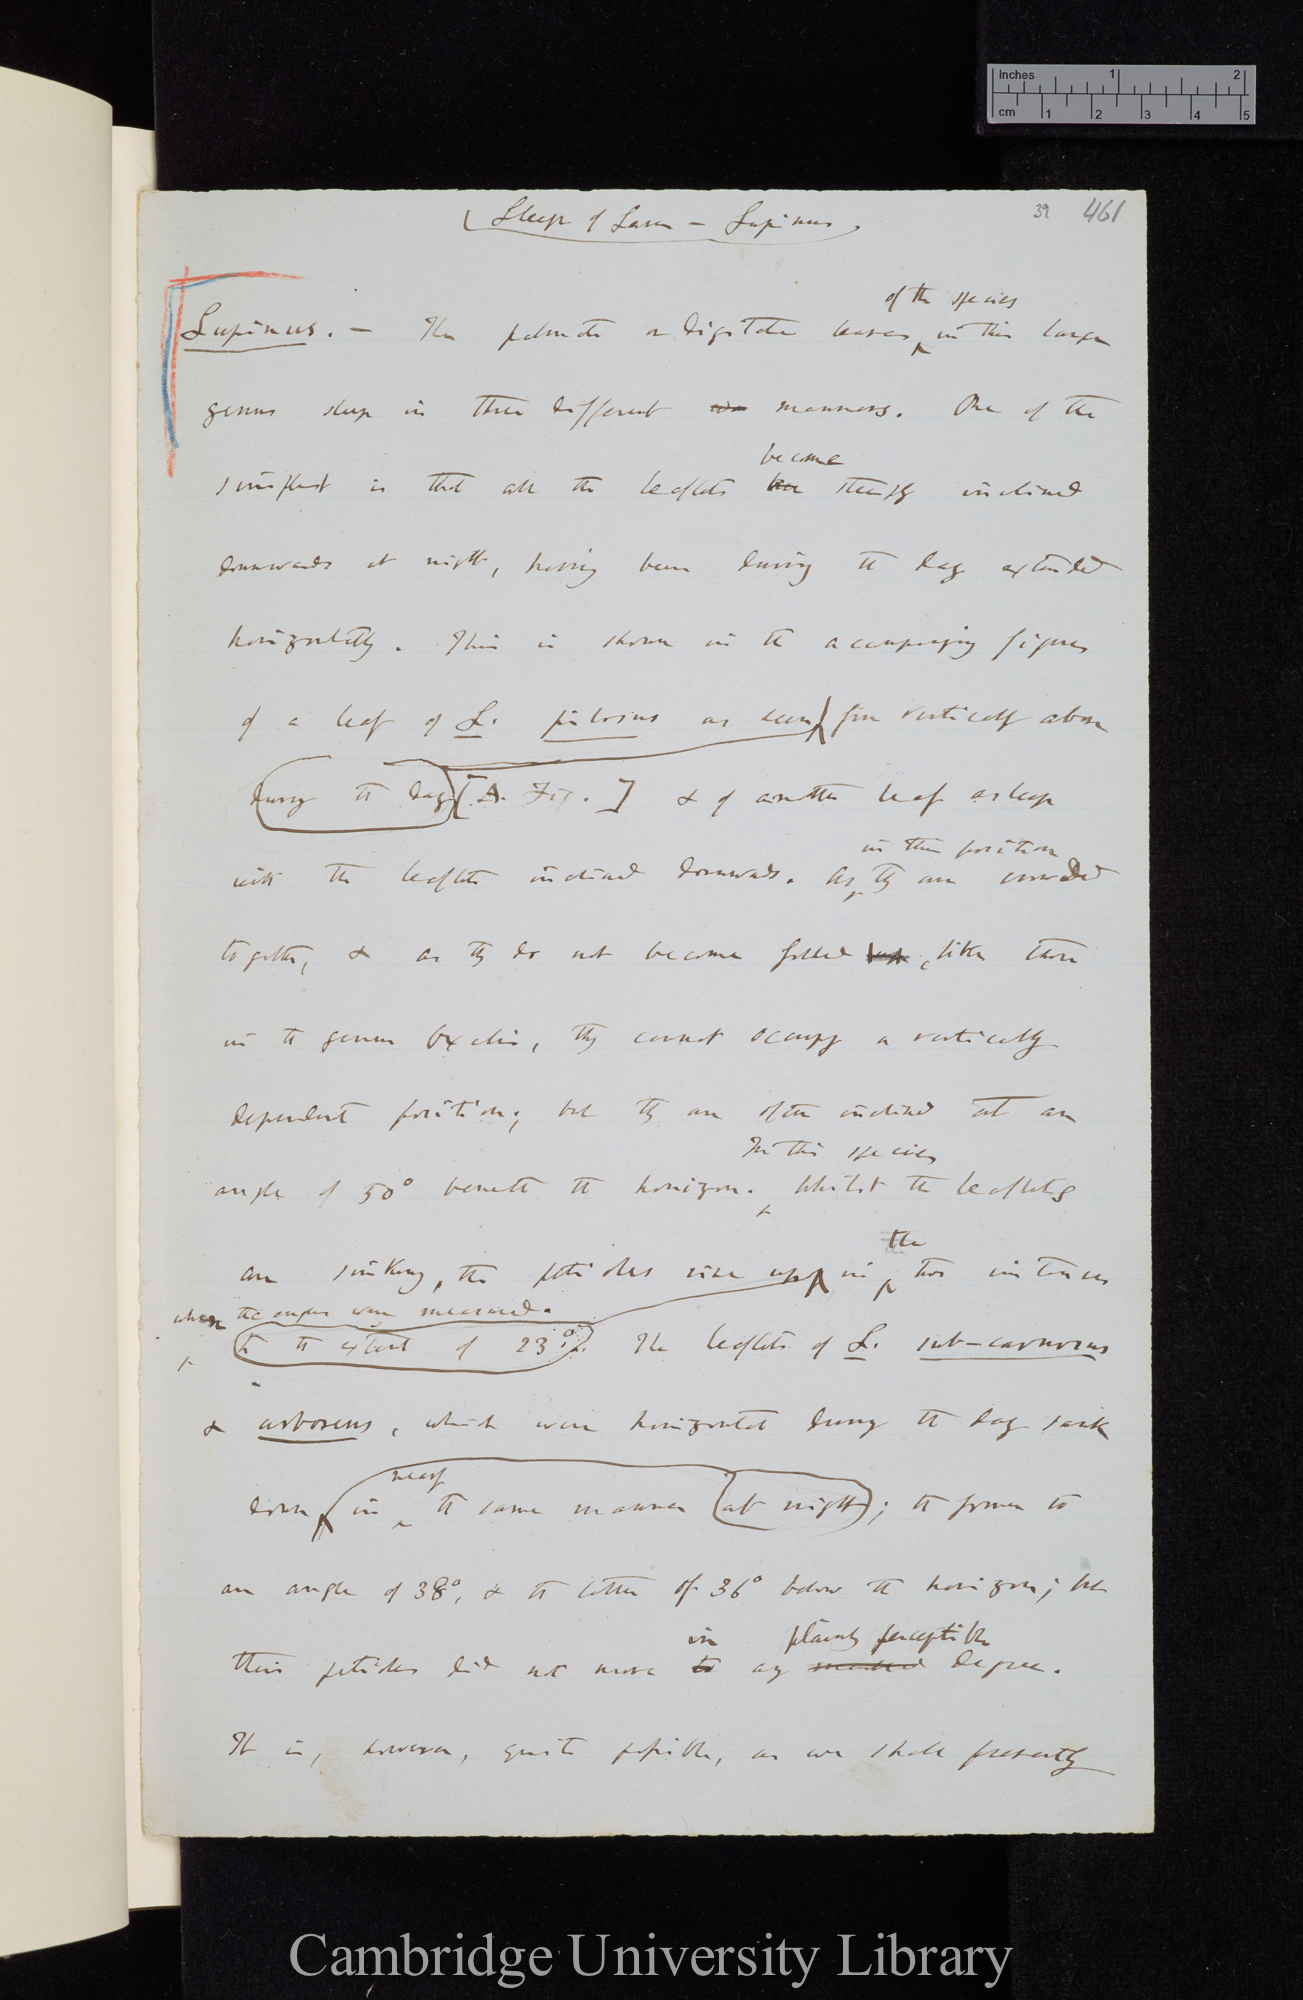 Inches 1 2
cm 1 2 3 4 5
39 461
(Sleep of Leaves — Lupinus)
of the species
Lupinus. — The palmate or digitate leaves in this large
genus sleep in three different manners. One of the
become
simplest is that all the leaflets steeply inclined
downwards at night, having been during the day extended
horizontally. This is shown in the accompanying figures
of a leaf of L. pilosus as seen from vertically above
during the day [A. Fig.] & of another leaf asleep
in this position
with the leaflets inclined downwards. As they are crowded
together, & as they do not become folded up, like those
in the genus Oxalis, they cannot occupy a vertically
dependent position; but they are often inclined at an
In this species
angle of 50° beneath the horizon. Whilst the leaflets
the
are sinking, the petioles rise up in two instances
when the angles were measured.
to the extent of 23°. The leaflets of L. sub-carnosus
& arboreus, which were horizontal during the day sank
nearly
down in the same manner at night; the former to
an angle of 38°, & the latter of 36° below the horizon; but
in plainly perceptible
their petioles did not move to any marked degree.
It is, however, quite possible, as we shall presently
Cambridge University Library